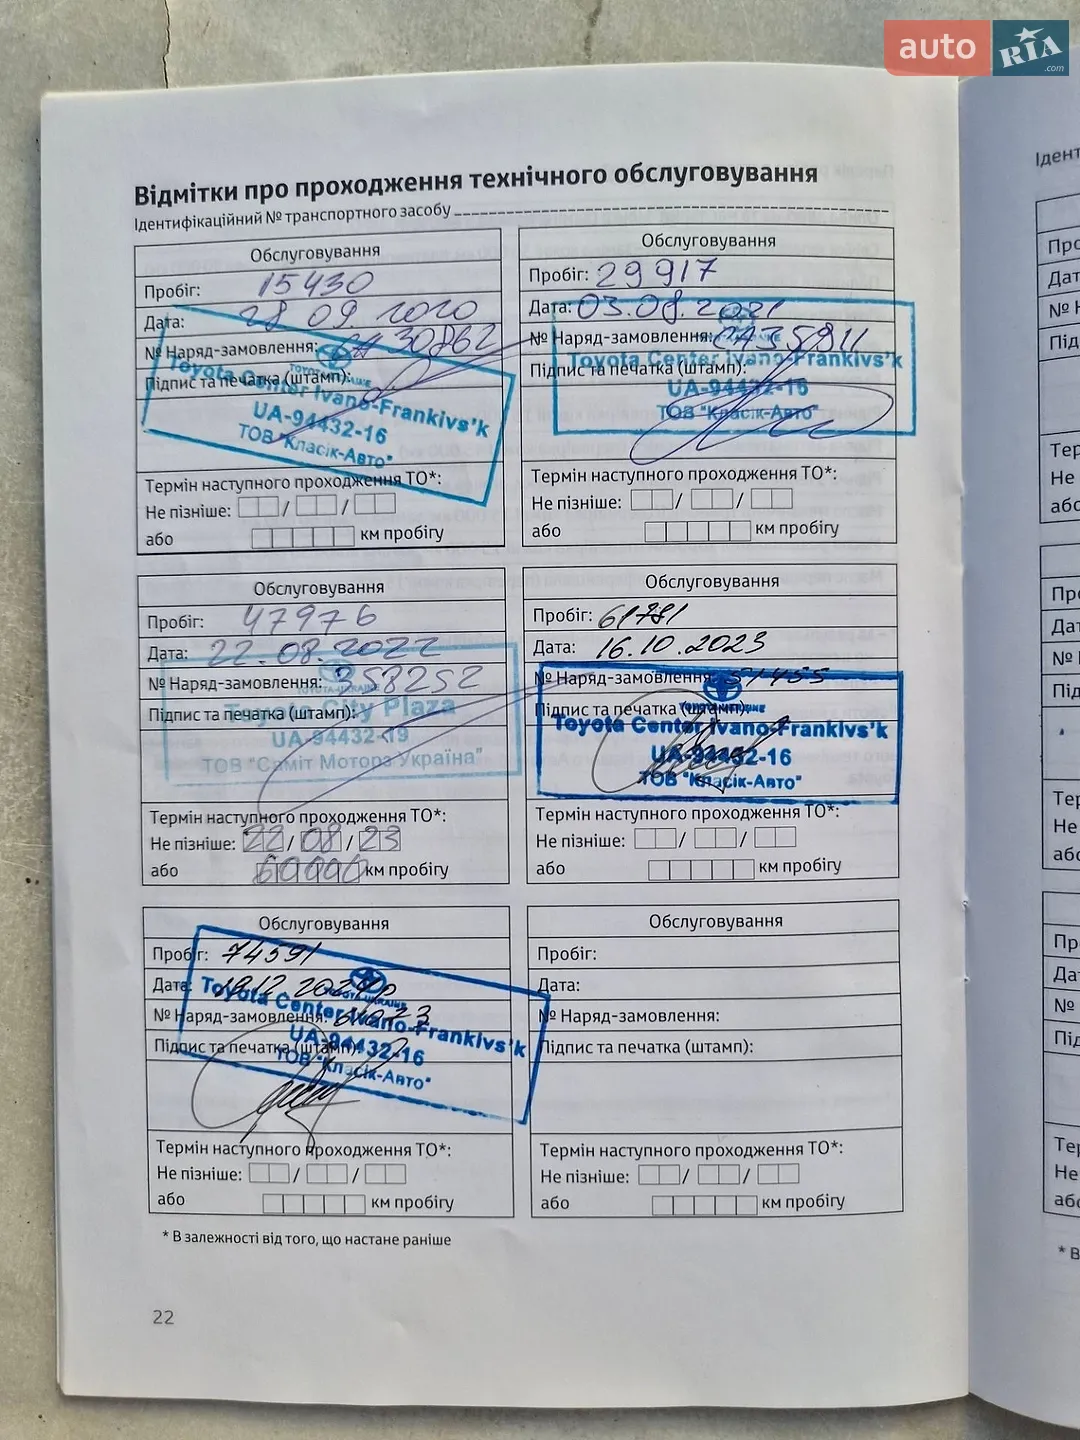 auto RIA .com
Відмітки про проходження технічного обслуговування
Ідентифікаційний № транспортного засобу
Обслуговування
Пробіг: 15430
Дата: 28 09. 2020
№ Наряд-замовлення: 30862
Підпис та печатка (штамп):
Toyota Center Ivano-Frankivs'k
UA-94432-16
ТОВ "Класік-Авто"
Термін наступного проходження ТО*:
Не пізніше: / /
або км пробігу
Обслуговування
Пробіг: 29917
Дата: 03.08.2021
№ Наряд-замовлення:
Підпис та печатка (штамп):
Toyota Center Ivano-Frankivs'k
UA-94432-16
ТОВ "Класік-Авто"
Термін наступного проходження ТО*:
Не пізніше: / /
або км пробігу
Обслуговування
Пробіг: 47976
Дата: 22.08.2022
№ Наряд-замовлення: 358252
TOYOTA-UKRAINE
Підпис та печатка (штамп):
Toyota City Plaza
UA-94432-19
ТОВ "Саміт Моторз Україна"
Термін наступного проходження ТО*:
Не пізніше: 22/08/23
або 60000 км пробігу
Обслуговування
Пробіг: 61781
Дата: 16.10.2023
№ Наряд-замовлення: 51455
Підпис та печатка (штамп):
Toyota Center Ivano-Frankivs'k
UA-94432-16
ТОВ "Класік-Авто"
Термін наступного проходження ТО*:
Не пізніше: / /
або км пробігу
Обслуговування
Пробіг: 74591
Дата: 19.12.2024р
TOYOTA-UKRAINE
№ Наряд-замовлення:
Toyota Center Ivano-Frankivs'k
Підпис та печатка (штамп):
UA-94432-16
ТОВ "Класік-Авто"
Термін наступного проходження ТО*:
Не пізніше: / /
або км пробігу
Обслуговування
Пробіг:
Дата:
№ Наряд-замовлення:
Підпис та печатка (штамп):
Термін наступного проходження ТО*:
Не пізніше: / /
або км пробігу
* В залежності від того, що настане раніше
22